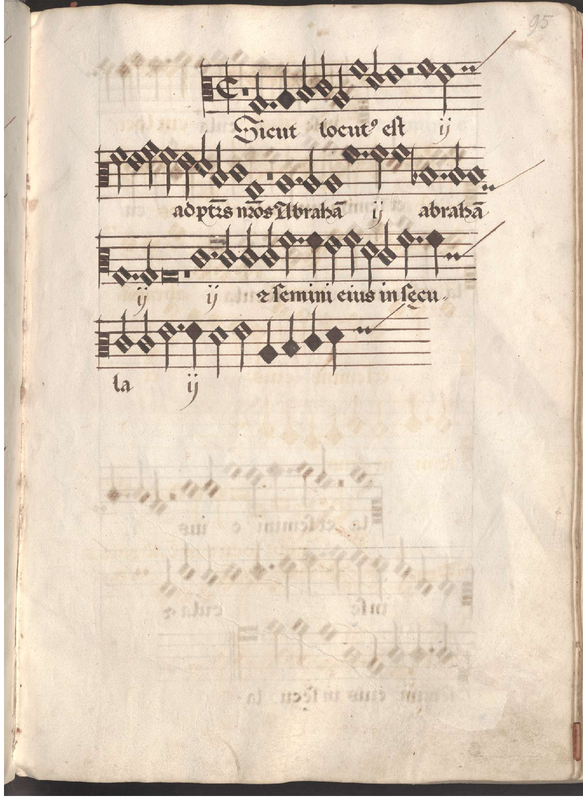 95
Sicut locutꝰ est ij
ad ptr̄s nr̄os Abrahā ij abrahā
ij ij ⁊ semini eius in secu
la ij